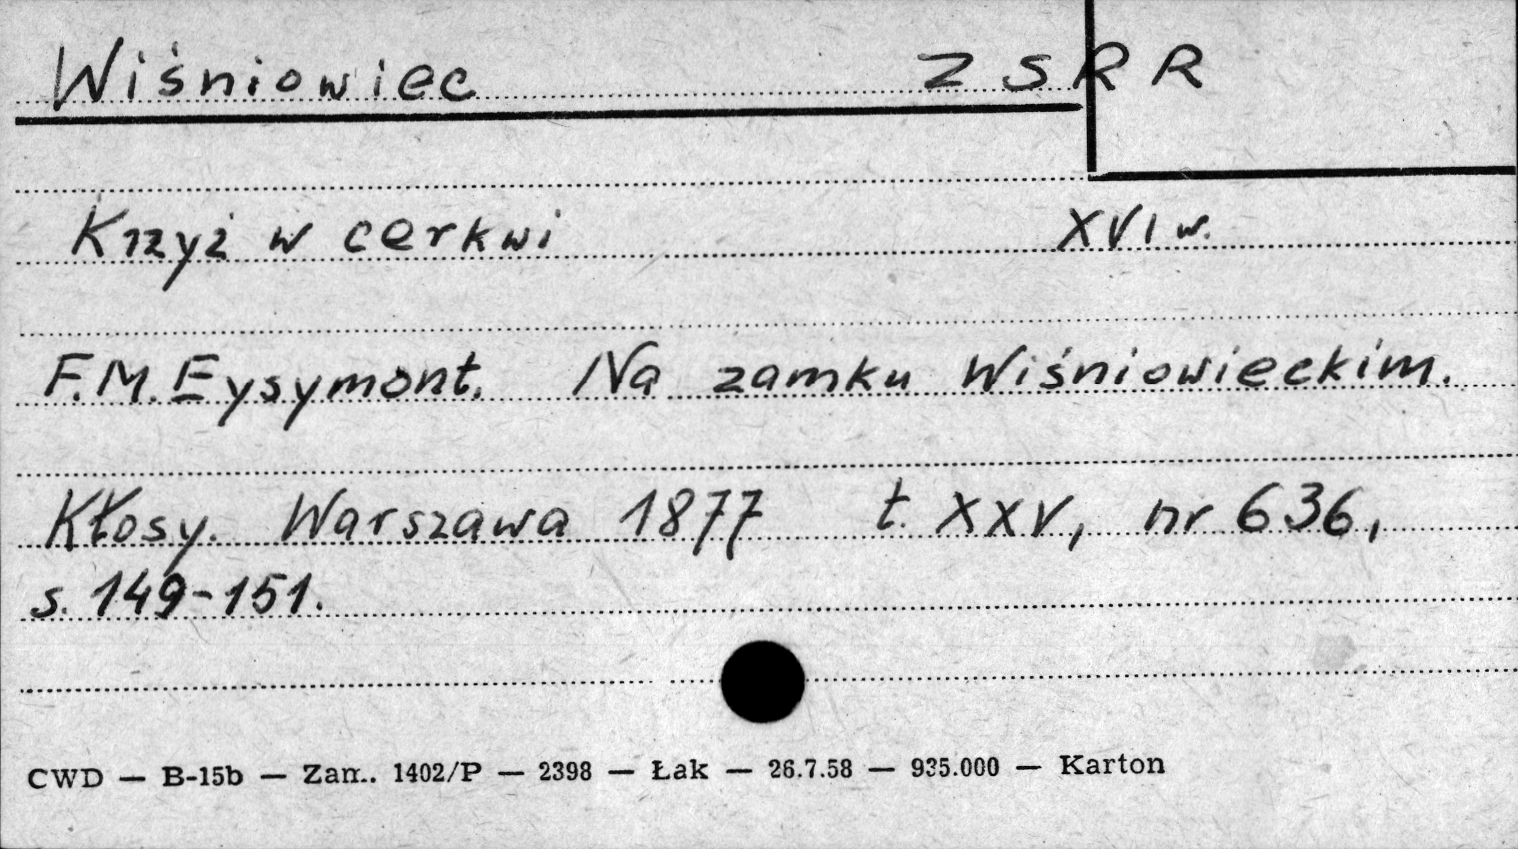 Wiśniowiec ZSRR
Krzyż w cerkwi XVI w.
F.M. Eysymont. Na zamku Wiśniowieckim.
Kłosy. Warszawa 1877 t. XXV, nr 636,
s. 149-151.
CWD — B-15b — Zam.. 1402/P — 2398 — Łak — 26.7.58 — 935.000 — Karton